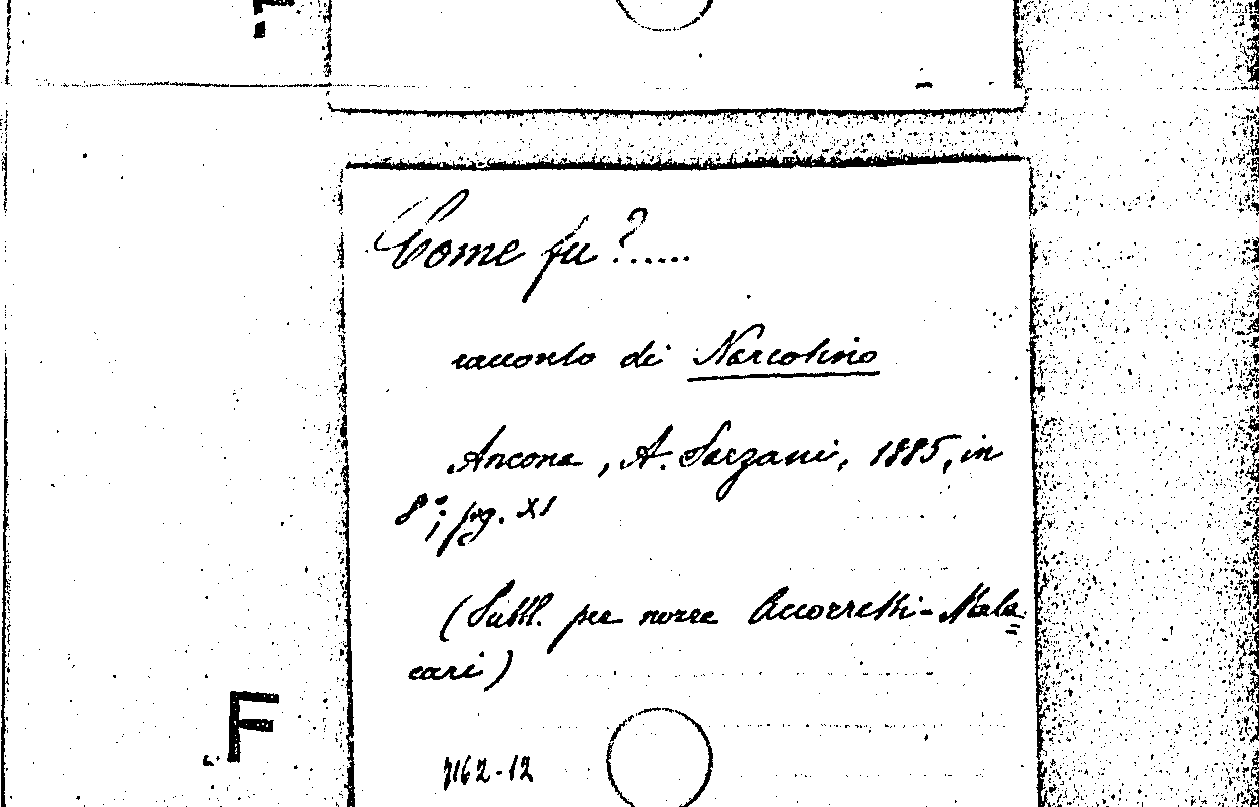 Come fu ?.....
racconto di Narcotino
Ancona, A. Sarzani, 1885, in
8°; pg. XI
(Pubbl. per nozze Accorretti-Mala=
cari)
F
7162-12